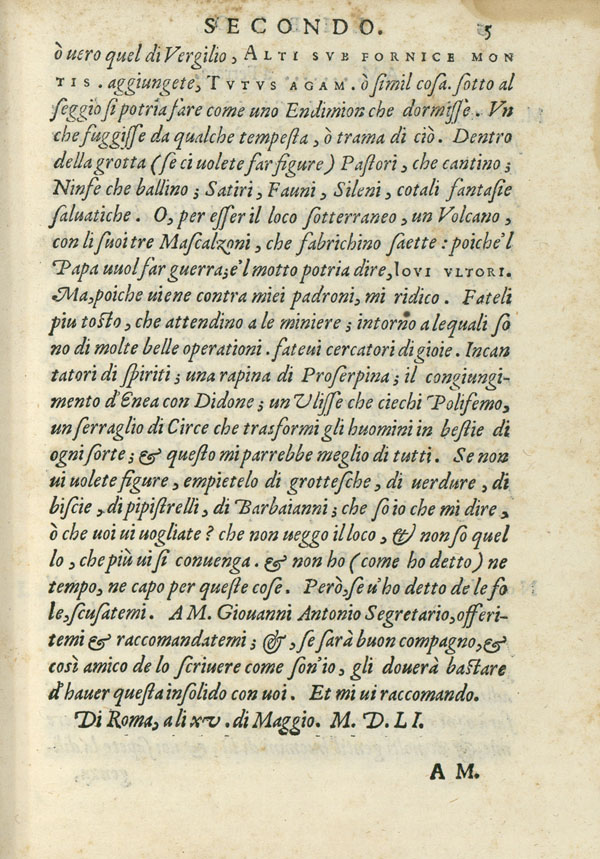 SECONDO. 5
ò uero quel di Vergilio, ALTI SVB FORNICE MON
TIS. aggiungete, TVTVS AGAM. ò simil cosa. sotto al
seggio si potria fare come uno Endimion che dormisse. Vn
che fuggisse da qualche tempesta, ò trama di ciò. Dentro
della grotta (se ci uolete far figure) Pastori, che cantino;
Ninfe che ballino; Satiri, Fauni, Sileni, cotali fantasie
saluatiche. O, per esser il loco sotterraneo, un Volcano,
con li suoi tre Mascalzoni, che fabrichino saette: poiche'l
Papa uuol far guerra; e'l motto potria dire, IOVI VLTORI.
Ma, poiche uiene contra miei padroni, mi ridico. Fateli
piu tosto, che attendino a le miniere; intorno a lequali so
no di molte belle operationi. fateui cercatori di gioie. Incan
tatori di spiriti; una rapina di Proserpina; il congiungi-
mento d'Enea con Didone; un Ulisse che ciechi Polifemo,
un serraglio di Circe che trasformi gli huomini in bestie di
ogni sorte; & questo mi parrebbe meglio di tutti. Se non
ui uolete figure, empietelo di grottesche, di uerdure, di
biscie, di pipistrelli, di Barbaianni; che so io che mi dire,
ò che uoi ui uogliate? che non ueggo il loco, & non so quel
lo, che più ui si conuenga. & non ho (come ho detto) ne
tempo, ne capo per queste cose. Però, se u'ho detto de le fo
le, scusatemi. A M. Giouanni Antonio Segretario, offeri-
temi & raccomandatemi; &, se sarà buon compagno, &
così amico de lo scriuere come son'io, gli douerà bastare
d'hauer questa insolido con uoi. Et mi ui raccomando.
Di Roma, a li xv. di Maggio. M. D. LI.
A M.